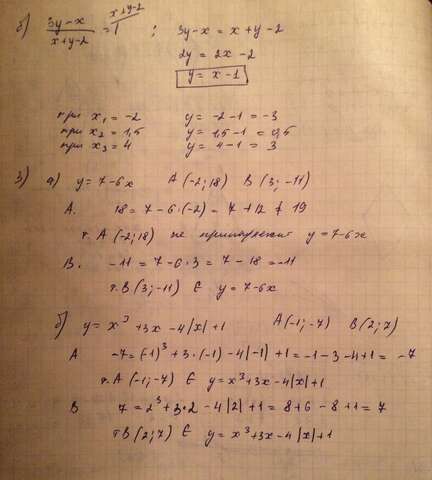 б) (3y-x)/(x+y-2) = 1 \ x+y-2 ; 3y-x = x+y-2
2y = 2x-2
y = x-1
при x₁ = -2 y = -2-1 = -3
при x₂ = 1,5 y = 1,5-1 = 0,5
при x₃ = 4 y = 4-1 = 3
3) а) y = 7-6x A(-2; 18) B(3; -11)
A. 18 = 7-6·(-2) = 7+12 ≠ 19
т. A(-2; 18) не принадлежит y = 7-6x
B. -11 = 7-6·3 = 7-18 = -11
т. B(3; -11) ∈ y = 7-6x
б) y = x³+3x-4|x|+1 A(-1; -7) B(2; 7)
A -7 = (-1)³+3·(-1)-4|-1|+1 = -1-3-4+1 = -7
т. A(-1; -7) ∈ y = x³+3x-4|x|+1
B 7 = 2³+3·2-4|2|+1 = 8+6-8+1 = 7
т B(2; 7) ∈ y = x³+3x-4|x|+1